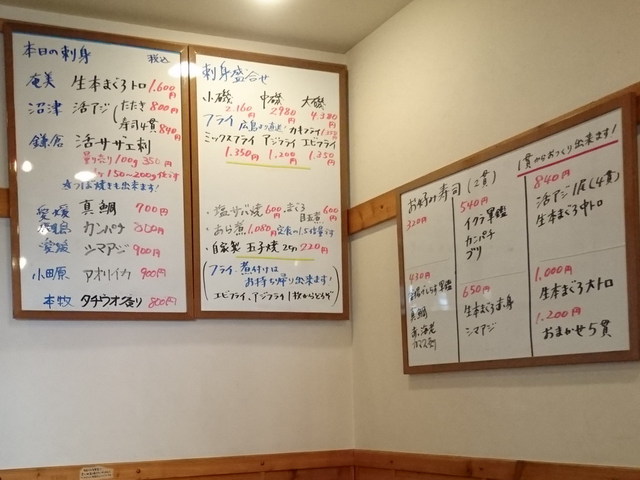 本日の刺身 税込
奄美 生本まぐろトロ 1,600円
沼津 活アジ たたき 800円
寿司4貫 840円
鎌倉 活サザエ刺
量り売り100g 350円
150~200g位です
つぼ焼きも出来ます!
愛媛 真鯛 700円
カンパチ
愛媛 シマアジ 900円
小田原 アオリイカ 900円
本牧 タチウオ炙り 800円
刺身盛合せ
小磯 中磯 大磯
2,160円 2,980円 4,380円
フライ 広島より直送! カキフライ
ミックスフライ アジフライ エビフライ
1,350円 1,200円 1,350円
・塩サバ焼 600円 ・まぐろ 600円
・あら煮 1,080円 定食の1.5倍量です
・自家製 玉子焼 220円
フライ、煮付けは
お持ち帰り出来ます!
エビフライ、アジフライ1枚からどうぞ
お好み寿司 (2貫)
320円
430円
真鯛
赤海老
540円
イクラ軍艦
カンパチ
ブリ
650円
生本まぐろ赤身
シマアジ
1貫からおつくり出来ます!
840円
活アジ1尾(4貫)
生本まぐろ中トロ
1,000円
生本まぐろ大トロ
1,200円
おまかせ5貫